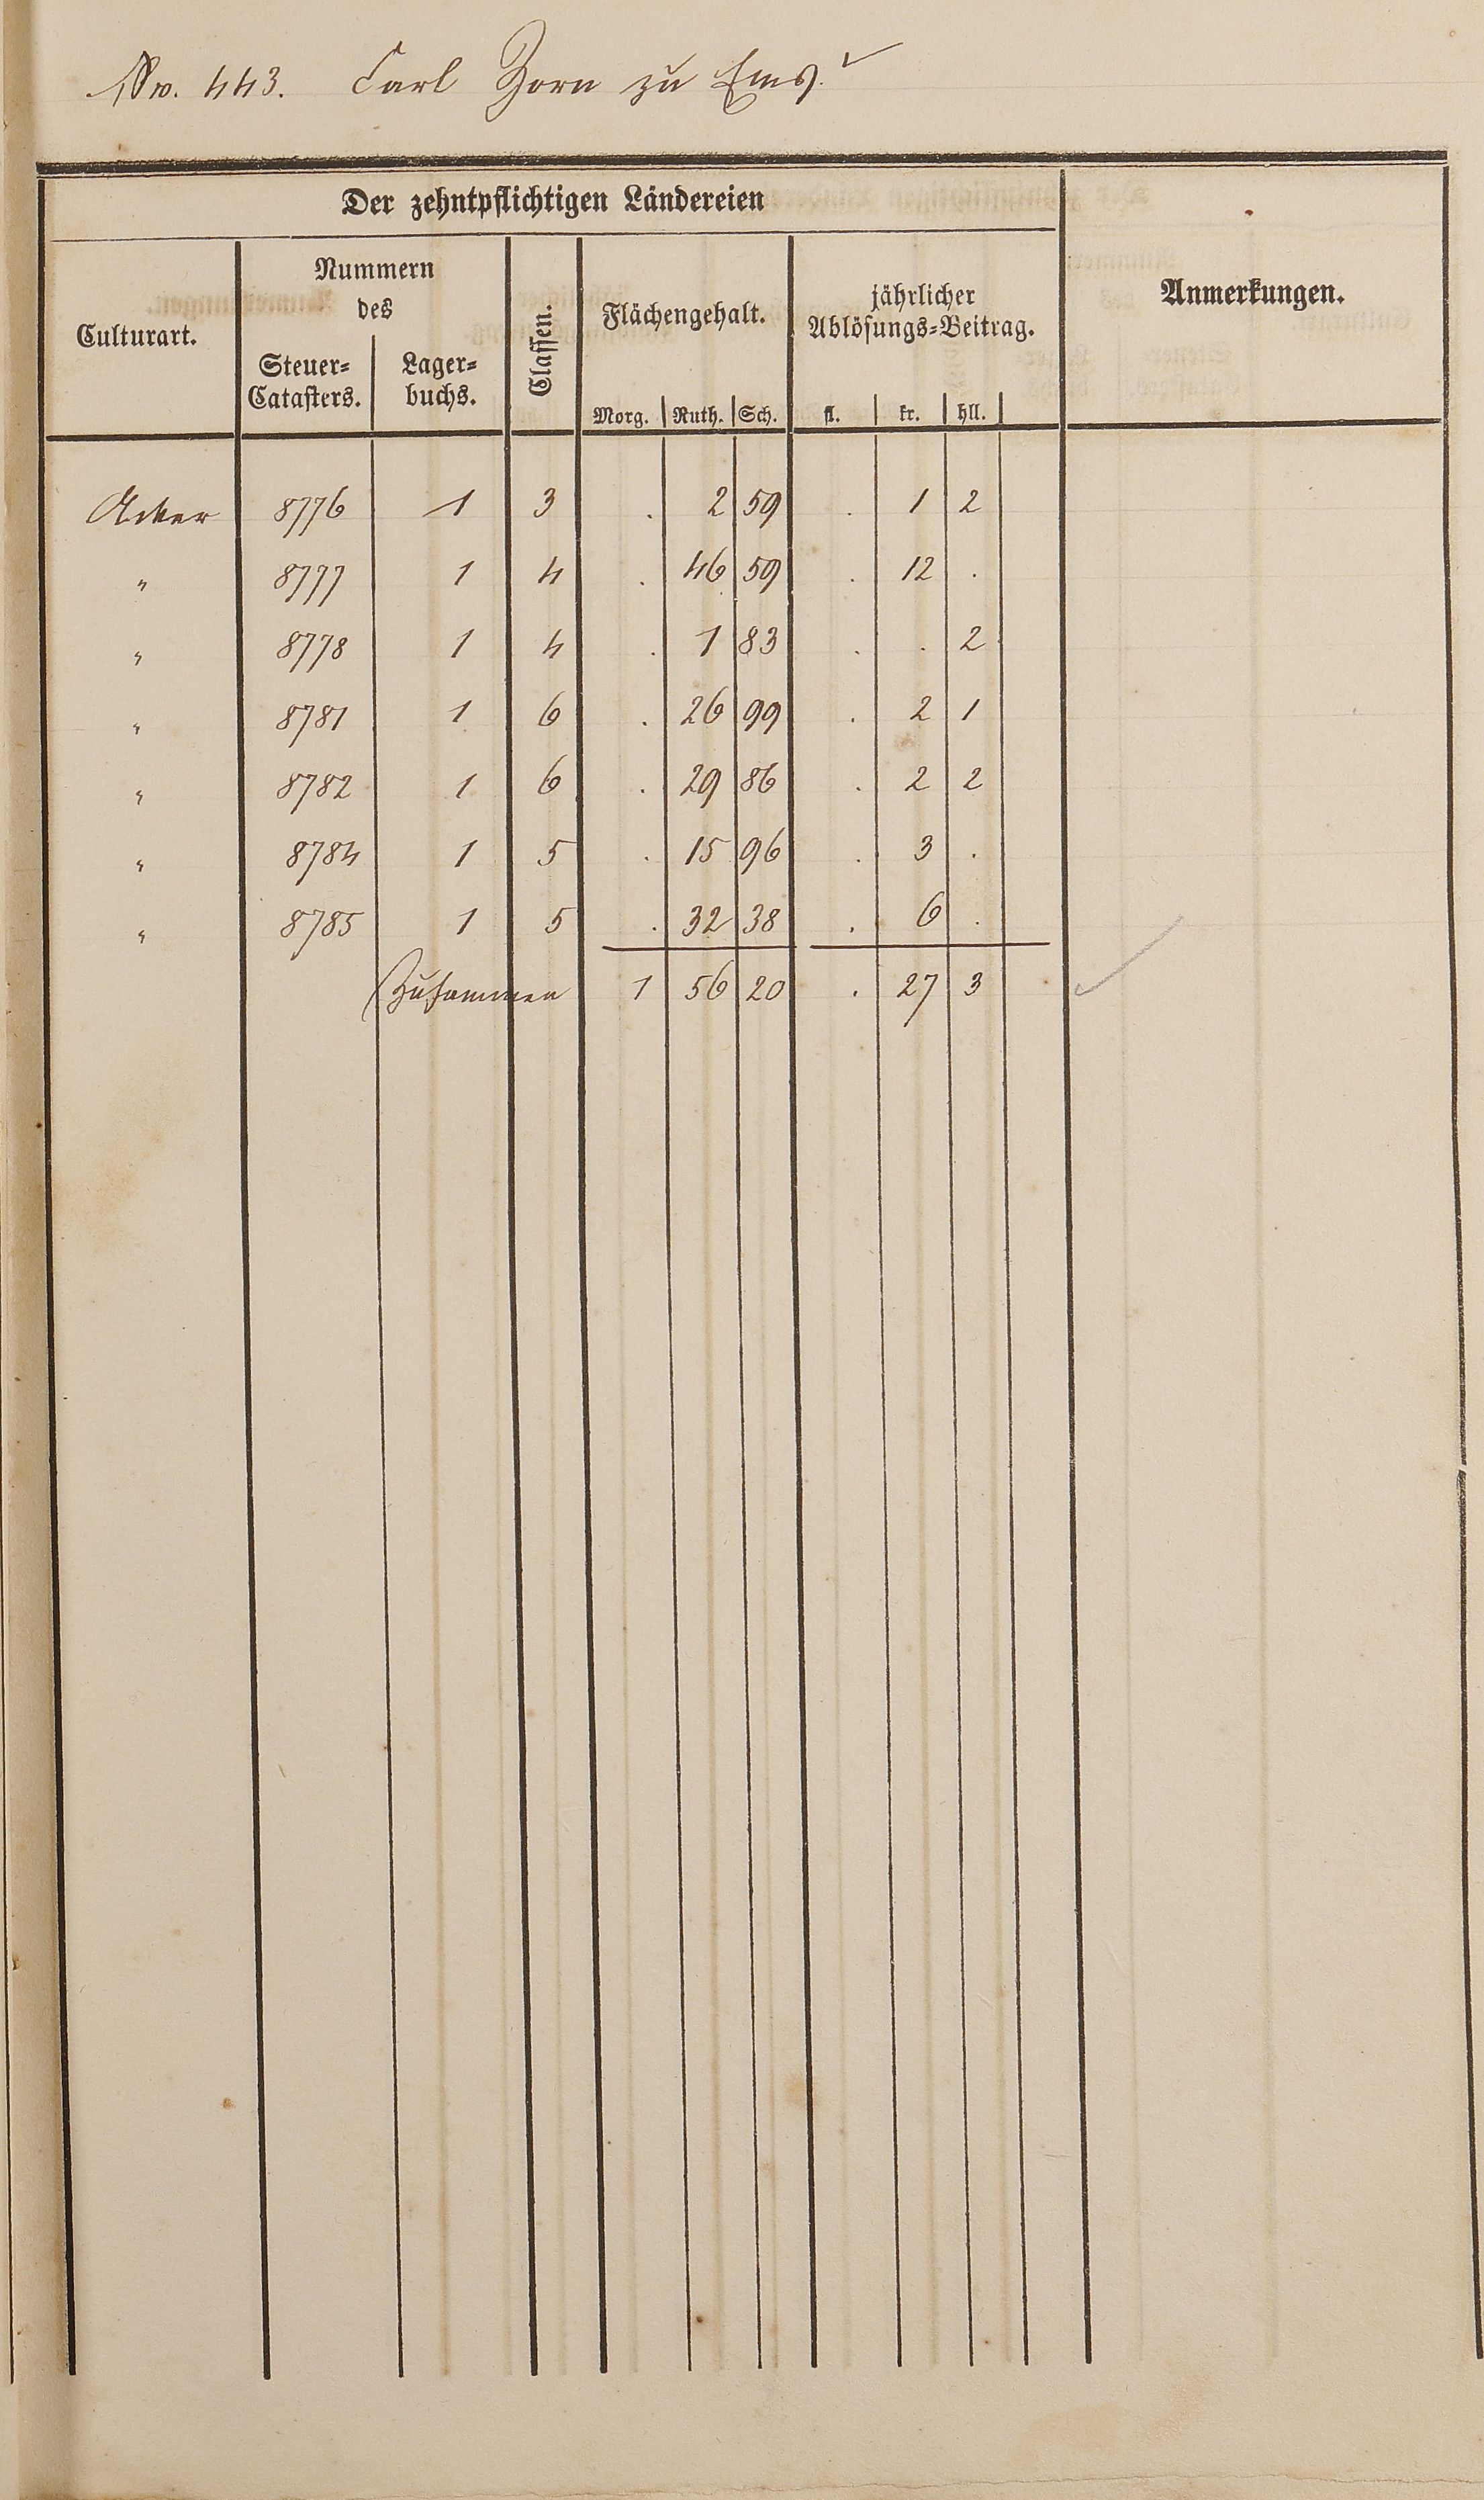 No. 443. Carl Zorn zu Ems.
Der zehntpflichtigen Ländereien
Culturart.
Nummern
des
Steuer=
Catasters.
Lager=
buchs.
Classen.
Flächengehalt.
Morg. Ruth. Sch.
jährlicher
Ablösungs=Beitrag.
fl. kr. hll.
Anmerkungen.
Acker 8776 1 3 . 2 59 . 1 2
" 8777 1 4 . 46 59 . 12 .
" 8778 1 4 . 1 83 . . 2
" 8781 1 6 . 26 99 . 2 1
" 8782 1 6 . 29 86 . 2 2
" 8784 1 5 . 15 96 . 3 .
" 8785 1 5 . 32 38 . 6 .
Zusammen 1 56 20 . 27 3